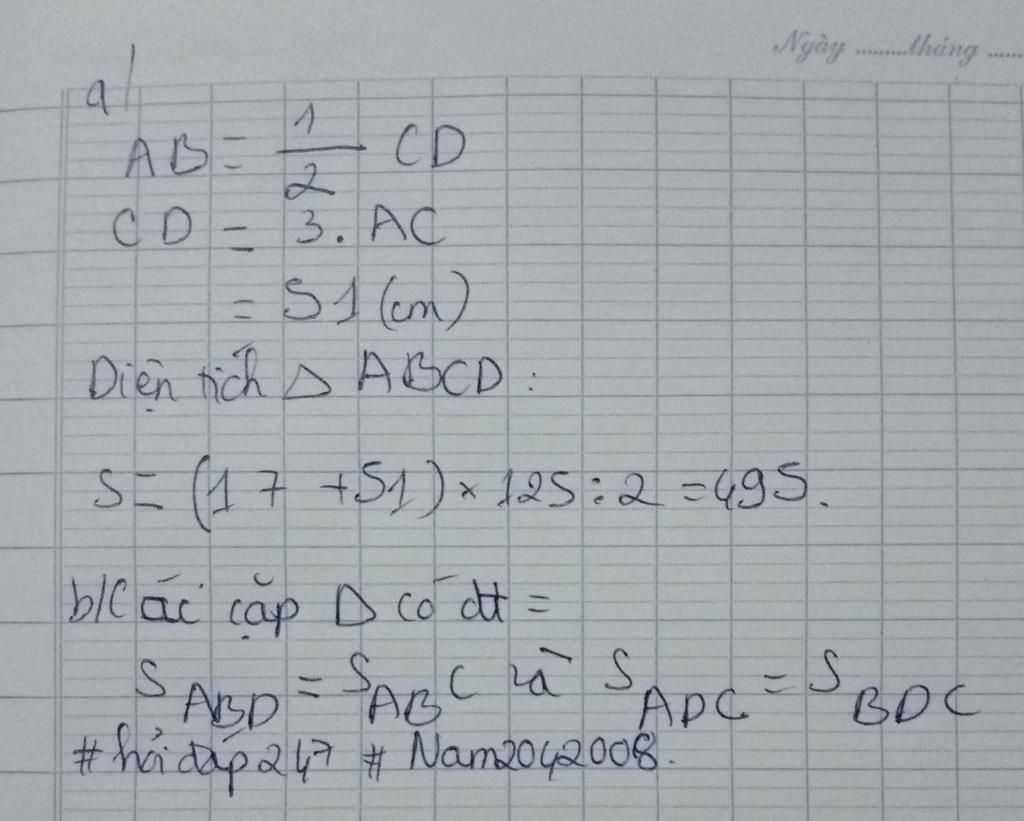 Ngày ........tháng ......
a/
AB = 1/2 CD
CD = 3. AC
= 51 (cm)
Diện tích △ ABCD :
S = (17 + 51) × 125 : 2 = 495.
b/ Các cặp △ có dt =
S ABD = S ABC và S ADC = S BDC
# hỏi đáp 247 # Nam2042008.